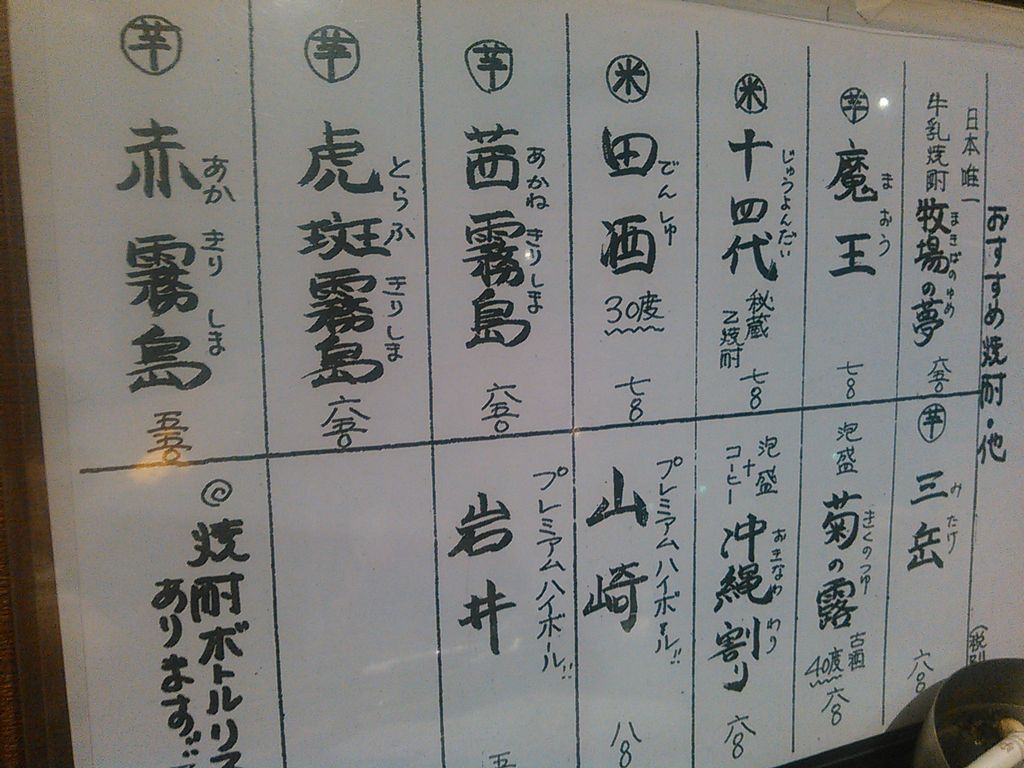 おすすめ焼酎・他
(税別
日本唯一
牛乳焼酎 牧場の夢 六五〇
まきばのゆめ
芋 魔王 七八〇
まおう
米 十四代 秘蔵 乙焼酎 七八〇
じゅうよんだい
米 田酒 30度 七八〇
でんしゅ
芋 茜霧島 六五〇
あかねきりしま
芋 虎斑霧島 六五〇
とらふきりしま
芋 赤霧島 五五〇
あかきりしま
芋 三岳 六八〇
みたけ
泡盛 菊の露 古酒 40度 六八〇
きくのつゆ
泡盛+コーヒー 沖縄割り 六八〇
おきなわわり
プレミアムハイボール!!
山崎 八八〇
プレミアムハイボール!!
岩井 五
◎焼酎ボトルリス
あります